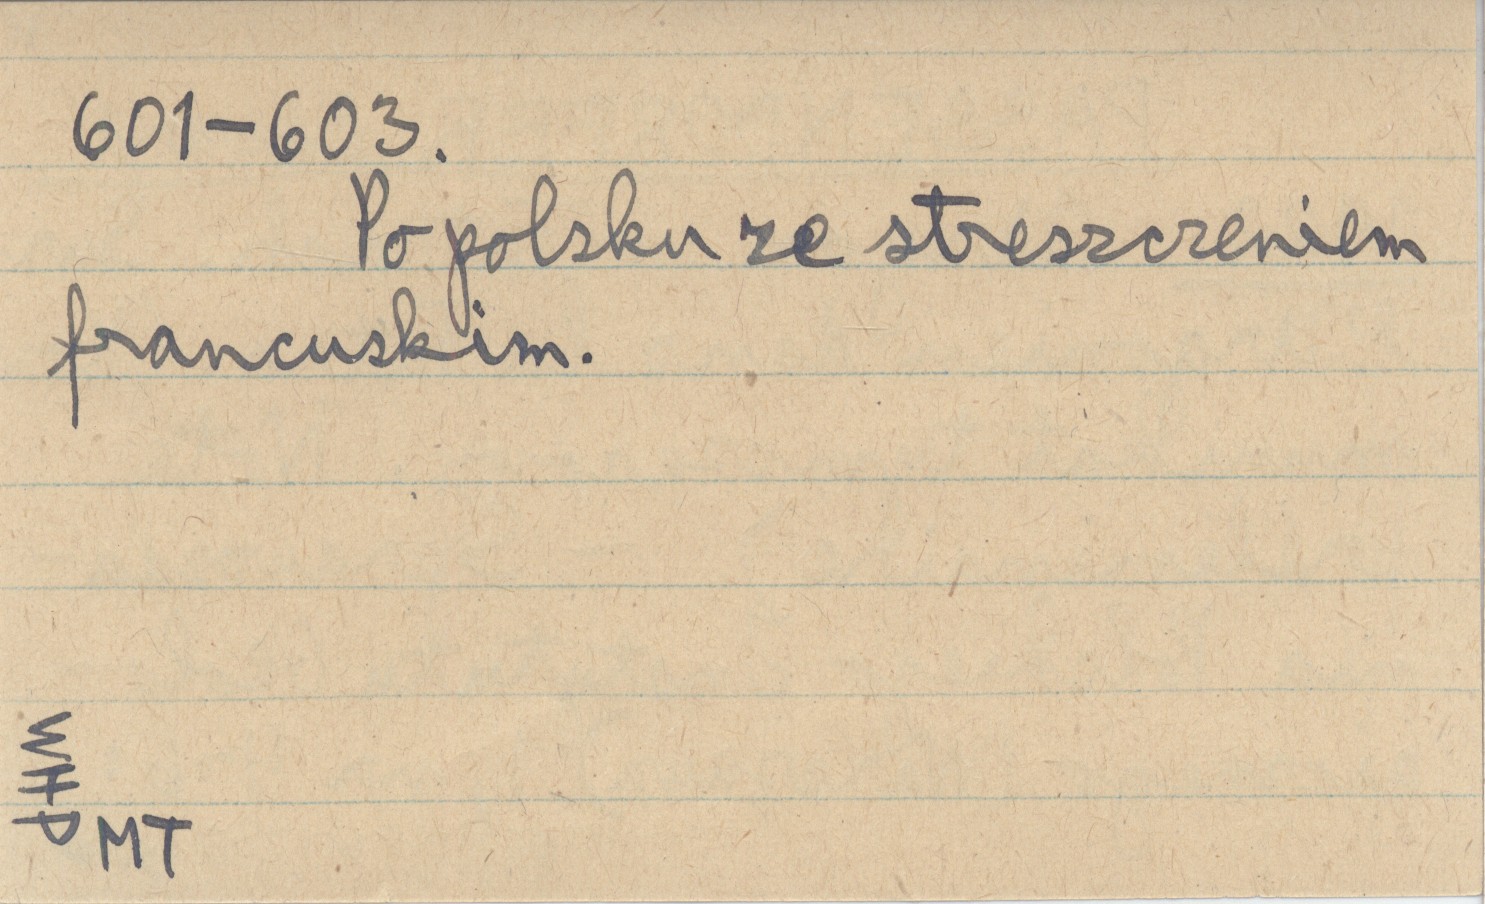 601-603.
Po polsku ze streszczeniem
francuskim.
WFP
MT